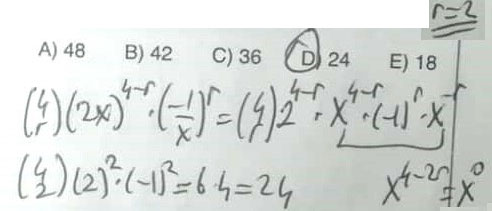 r=2
A) 48 B) 42 C) 36 D) 24 E) 18
(4 r)(2x)^4-r · (-1/x)^r = (4 r) 2^4-r · x^4-r · (-1)^r · x^-r
(4 2)(2)^2 · (-1)^2 = 6·4 = 24 x^4-2r = x^0